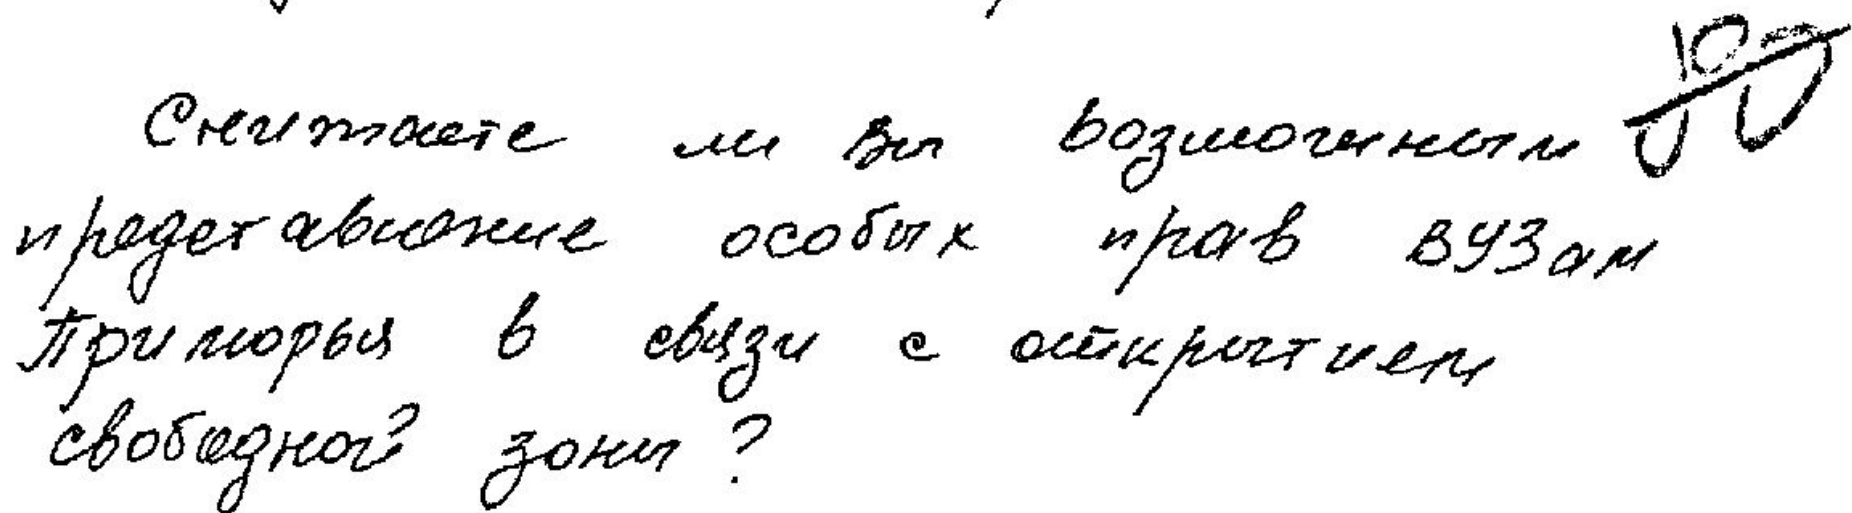 Считаете ли Вы возможным
представление особых прав ВУЗам
Приморья в связи с открытием
свободной зоны?